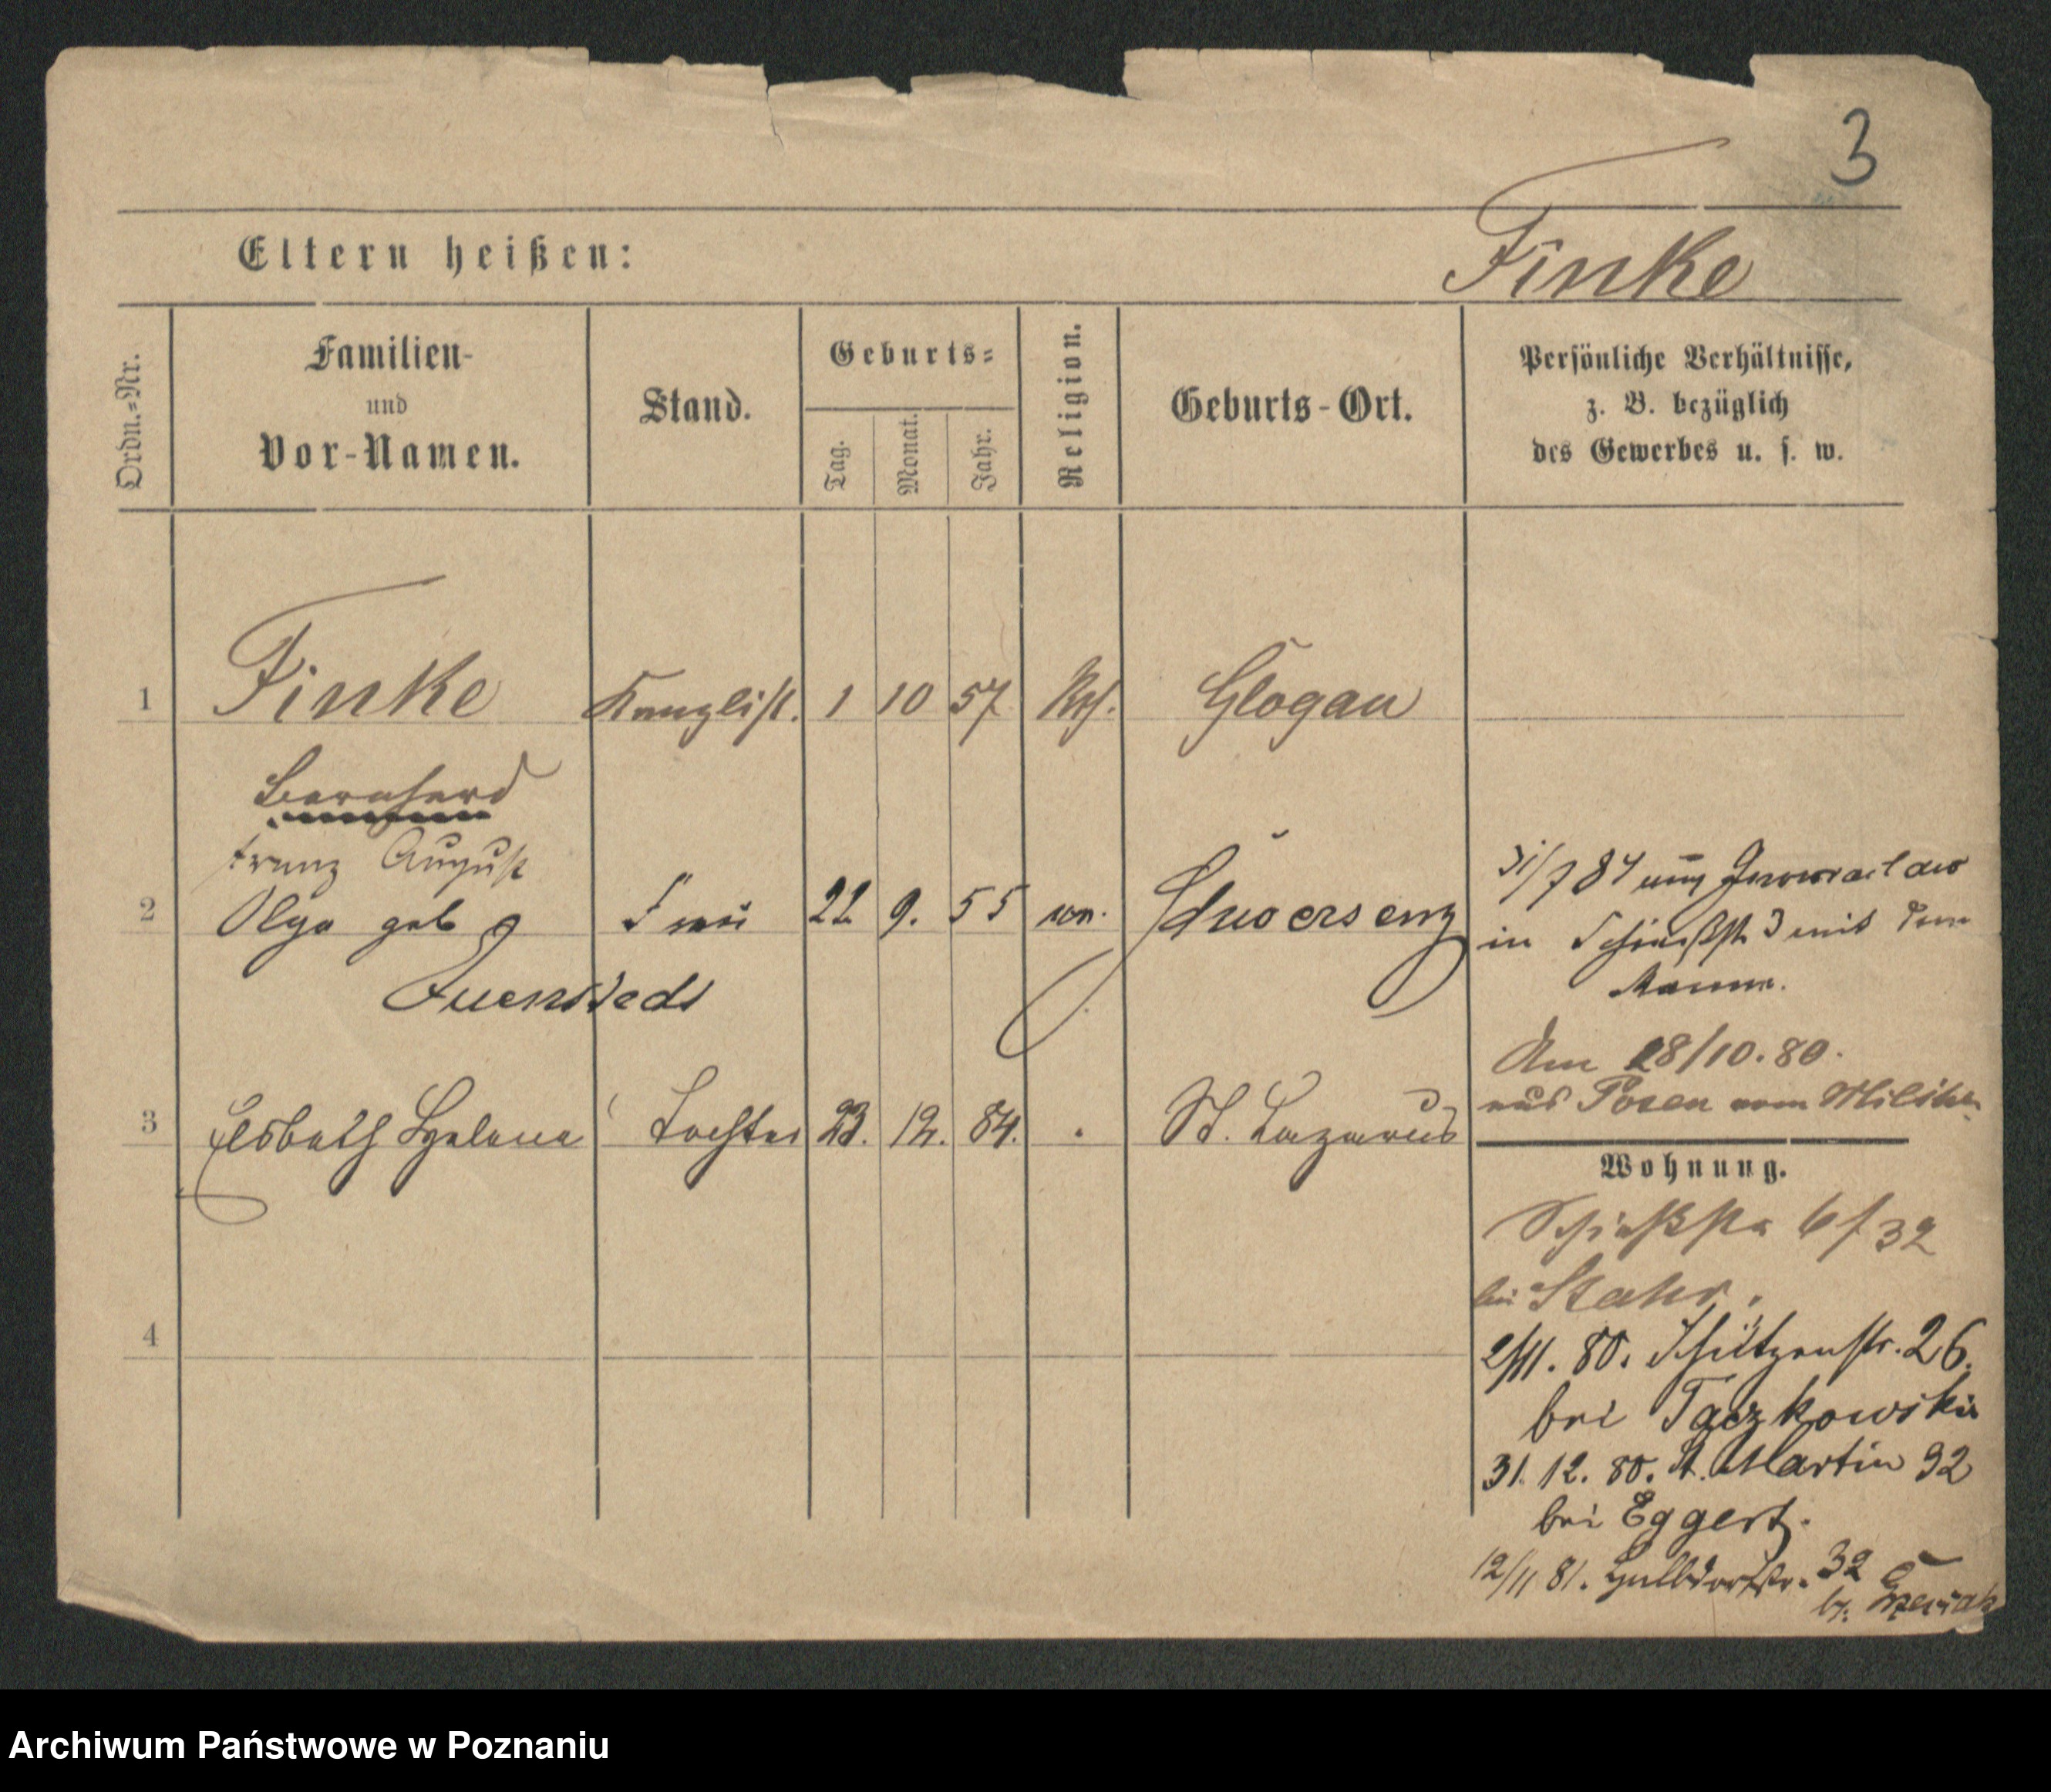 3
Eltern heißen:
Finke
Ordn.-Nr.
Familien-
und
Vor-Namen.
Stand.
Geburts-
Tag.
Monat.
Jahr.
Religion.
Geburts-Ort.
Persönliche Verhältnisse,
z. B. bezüglich
des Gewerbes u. s. w.
1 Finke Kanzlist. 1 10 57 Glogau
Bernhard
Franz August
2 Olga geb Frau 22 9. 55 Schwersenz
31/7 84 Inowraclaw
in 3 mit dem
Manne.
Am 28/10. 80.
aus Posen vom Militär
3 Elsbeth Helene Tochter 23. 12. 84. St. Lazarus
Wohnung.
Schießstr 6 / 32
bei Stahr.
2/11. 80. Schützenstr. 26.
bei Taczkowski
31. 12. 80. St. Martin 32
bei Eggert.
12/11 81. Halbdorfstr. 32
b.
4
Archiwum Państwowe w Poznaniu